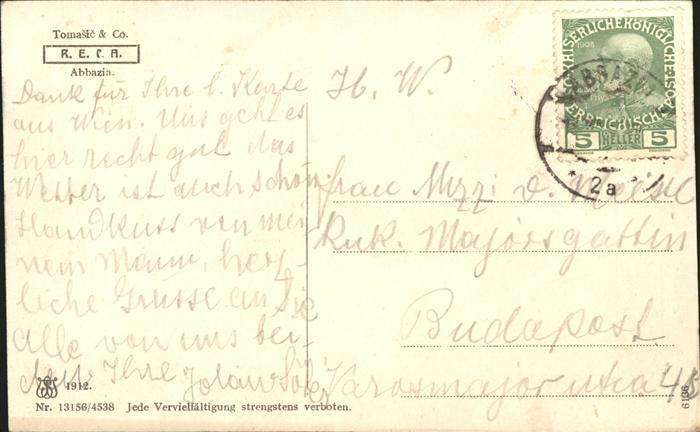 Tomašič & Co.
R. E. C. A.
Abbazia.
Dank für Ihre l. Karte
aus Wien. Uns geht es
hier recht gut, das
Wetter ist auch schön
Handkuss von mei
nem Mann, herz-
liche Grüsse an Sie
alle von uns bei-
den. Ihre Jolan
H. W.
Frau Mizzi v.
kuk. Majorsgattin
Budapest
Varosmajor utca 48
KAISERLICHE KÖNIGLICHE
ÖSTERREICHISCHE
1908
5 HELLER 5
ABBAZIA
2a
1912.
Nr. 13156/4538 Jede Vervielfältigung strengstens verboten.
6136